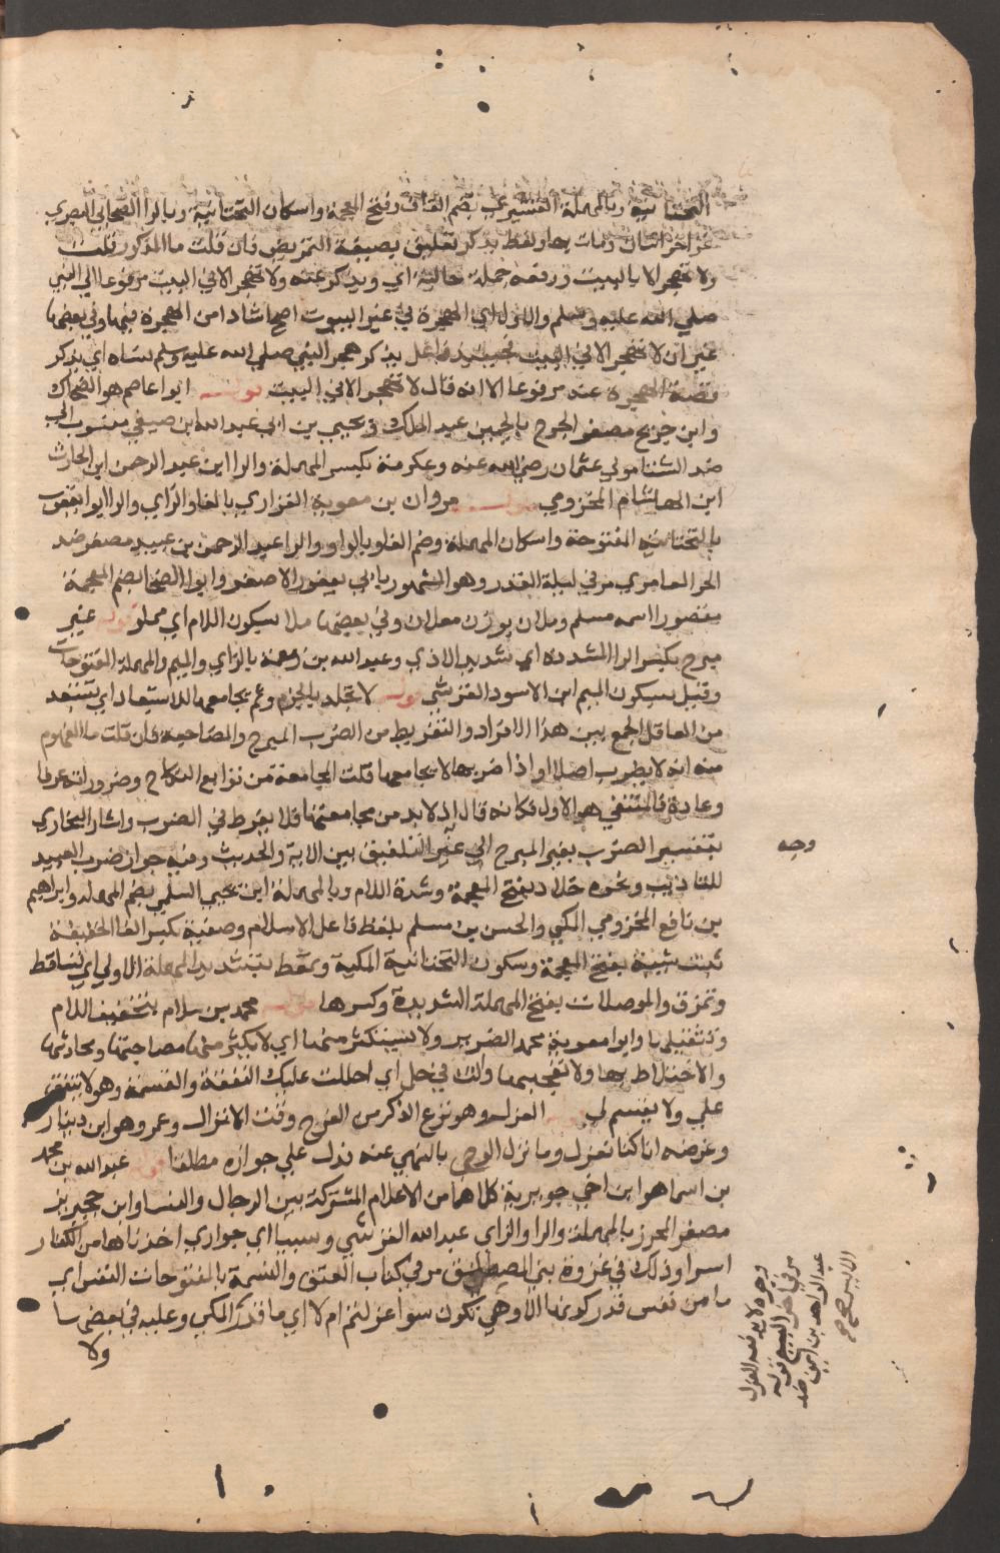 التحتانية وبالمهملة القشيري بضم القاف وفتح المعجمة واسكان التحتانية وبالراء الصحابي البصري
غزا خراسان ومات بها ولفظ يذكر تعليق بصيغة التمريض فان قلت ما المذكور قلت
ولا تهجر الا بالبيت ورفعه جملة حالية اي ويذكر عنه ولا تهجر الا في البيت مرفوعا الي النبي
صلي الله عليه وسلم والاول اي الهجرة في غير البيوت اصح اسنادا من الهجرة فيها وفي بعضها
غير ان لا تهجر الا في البيت فحينئذ فاعل يذكر هجر النبي صلي الله عليه وسلم نساه اي يذكر
قصة الهجرة عنه مرفوعا الا انه قال لا تهجر الا في البيت قوله ابوا عاصم هو الضحاك
وابن جريج مصغر الجرج بالجيمين عبد الملك ويحيى بن عبد الله ابن صيفي منسوب الى
ضد الشتا مولي عثمان رضي الله عنه وعكرمة بكسر المهملة والراء ابن عبد الرحمن ابن الحارث
ابن الهشام المخزومي قوله مروان بن معوية الفزاري بالفا والزاي والراء ابوا يعفور
بالتحتانية المفتوحة واسكان المهملة وضم الفا وبالواو والرا عبد الرحمن بن عبيد مصغر ضد
الحر العامري مر في ليلة القدر وهو المشهور بابي يعفور الاصغر وابوا الضحا بضم المعجمة
مقصورا اسمه مسلم وملان بوزن فعلان وفي بعضها ملا بسكون اللام اي مملو قوله غير
مبرح بكسر الراء المشددة اي شديد الاذي وعبد الله بن زمعة بالزاي والميم والمهملة المفتوحات
وقيل بسكون الميم ابن الاسود القرشي قوله لا تجلد بالجزم وثم يجامعها للاستبعاد اي يستبعد
من العاقل الجمع بين هذا الافراد والتفريط من الضرب المبرح والمضاجعة فان قلت ما المفهوم
منه انه لا يضرب اصلا او اذا ضربها لا يجامعها قلت المجامعة من توابع النكاح وضروراته عرفا
وعادة فالمنتفي هو الاول فكانه قال اذ لا بد من مجامعتها فلا يفرط في الضرب واشار البخاري
بتفسير الضرب بغير المبرح الي التلفيق بين الاية والحديث وفيه جواز ضرب العبيد
للتاديب ونحوه خلاد بفتح المعجمة وشدة اللام وبالمهملة ابن يحيى السلمي بضم المهملة وابراهيم
بن نافع المخزومي المكي والحسن بن مسلم بلفظ فاعل الاسلام وصفية بكسر الفا الخفيفة
بنت شيبة بفتح المعجمة وسكون التحتانية المكية وتمعط بتشديد المهملة الاولي اي تساقط
وتمزق والموصلات بفتح المهملة الشديدة وكسرها قوله محمد بن سلام بتخفيف اللام
وتثقيلها وابوا معوية محمد الضرير ولا يستكثر منها اي لا يكثر منها مصاحبتها ومحادثها
والاختلاط بها ولا تعجبها وانت في حل اي احللت عليك النفقة والقسمة وهو لا ينفق
علي ولا يقسم لي قوله العزل وهو نزع الذكر من الفرج وقت الانزال وعمرو هو ابن دينار
وغرضه انا كنا نعزل وما نزل الوحي بالنهي عنه فدل علي جوازه مطلقا قوله عبد الله بن محمد
بن اسما هو ابن اخي جويرية كلاهما من الاعلام المشتركة بين الرجال والنسا وابن محيريز
مصغر المحرز بالمهملة والراء والزاي عبد الله القرشي وسبيا اي جواري اخذناها من الكفار
اسرا وذلك في غزوة بني المصطلق مر في كتاب العتق والنسمة بالمفتوحات النفس اي
ما من نفس قدر كونها الا وهي تكون سوا عزلتم ام لا اي ما قدر المكي وعليه في بعض سا
ولا
وجه
وجوه لا يوصف العزل
مر في اخر البيع قوله
عبد الواحد بن ايمن ضد
الايسر صح